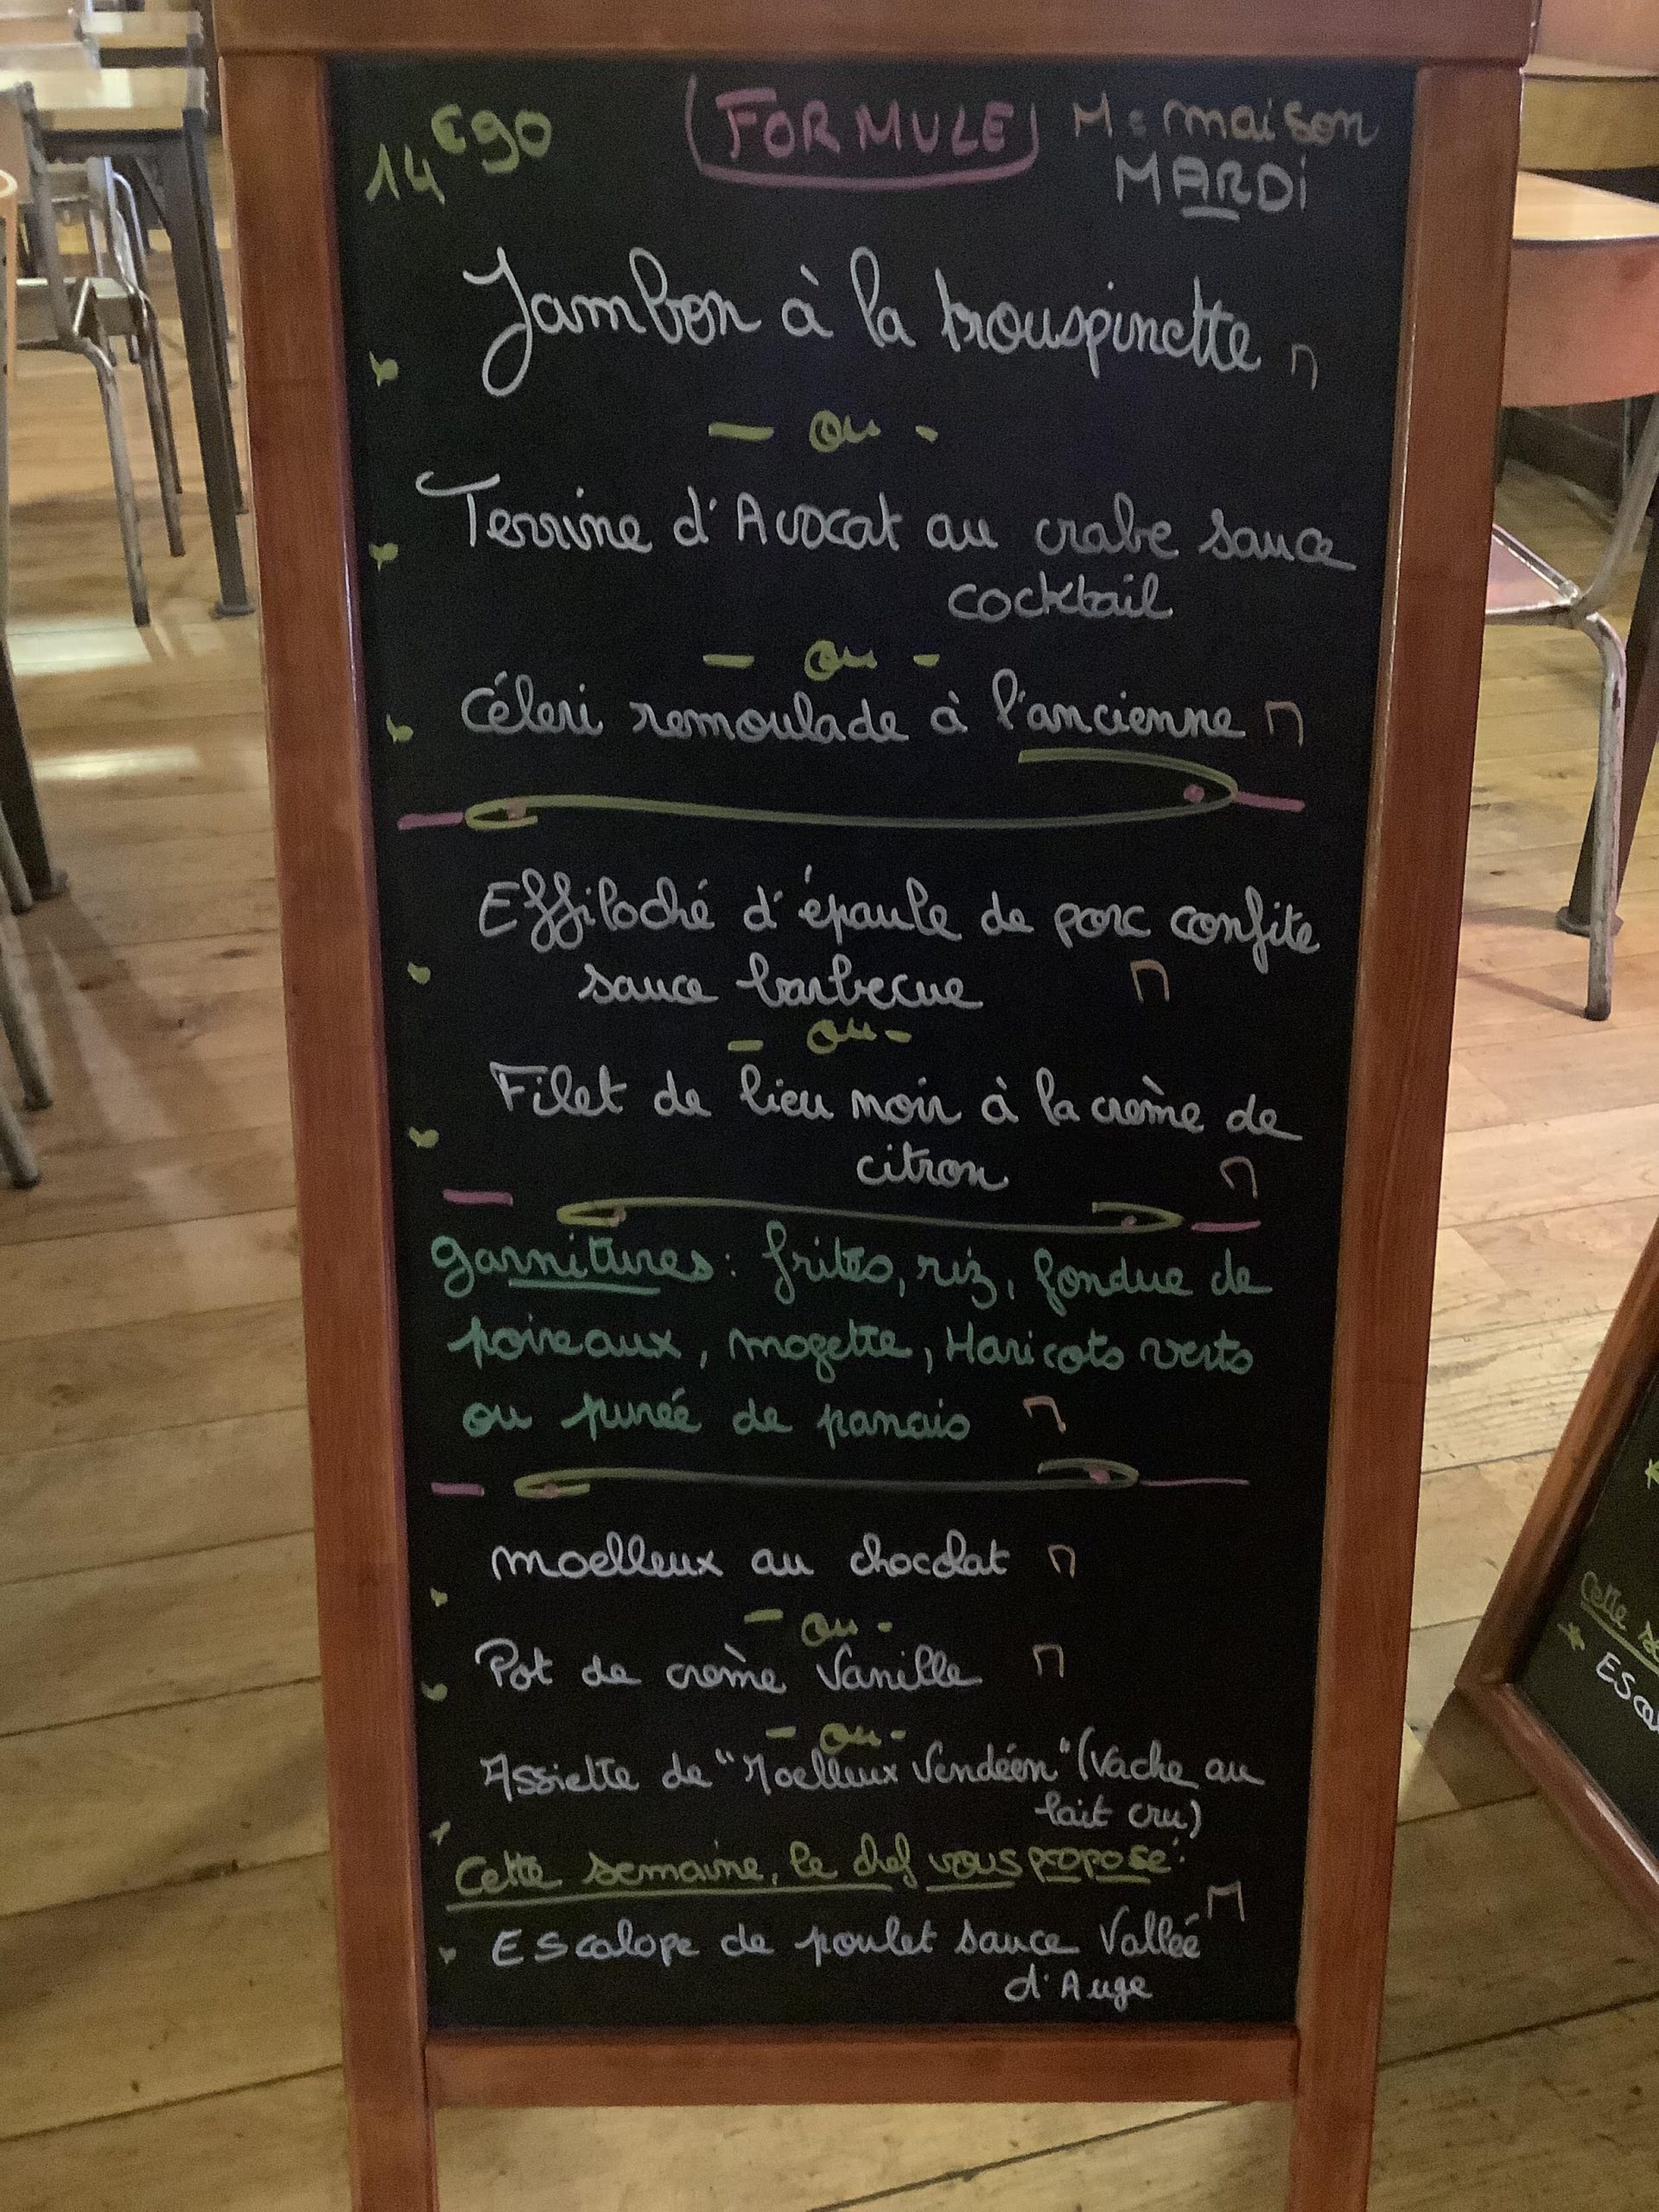 14€90 FORMULE M: maison
MARDi
Jambon à la trouspinette M
- ou -
Terrine d'Avocat au crabe sauce
cocktail
- ou -
Céleri remoulade à l'ancienne M
Effiloché d'épaule de porc confite
sauce barbecue M
- ou -
Filet de lieu noir à la crème de
citron M
garnitures : frites, riz, fondue de
poireaux, mogette, Haricots verts
ou purée de panais M
moelleux au chocolat M
- ou -
Pot de crème Vanille M
- ou -
Assiette de "Moelleux Vendéen" (Vache au
lait cru)
Cette semaine, le chef vous propose :
Escalope de poulet sauce Valleé M
d'Auge
Cette se
Esca